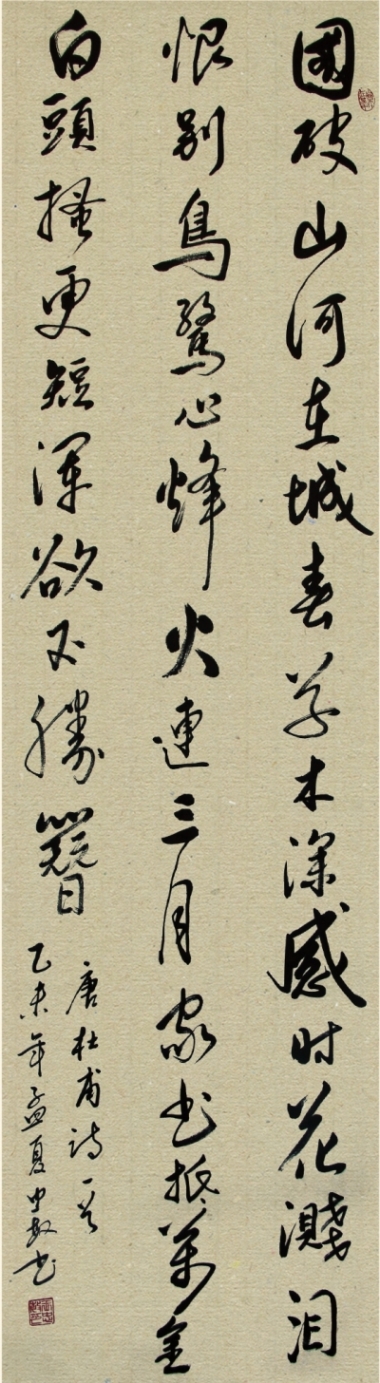 國破山河在城春草木深感时花濺泪
恨别鳥驚心烽火連三月家书抵萬金
白頭搔更短渾欲不勝簪
唐杜甫诗一首
乙未年孟夏中敏书